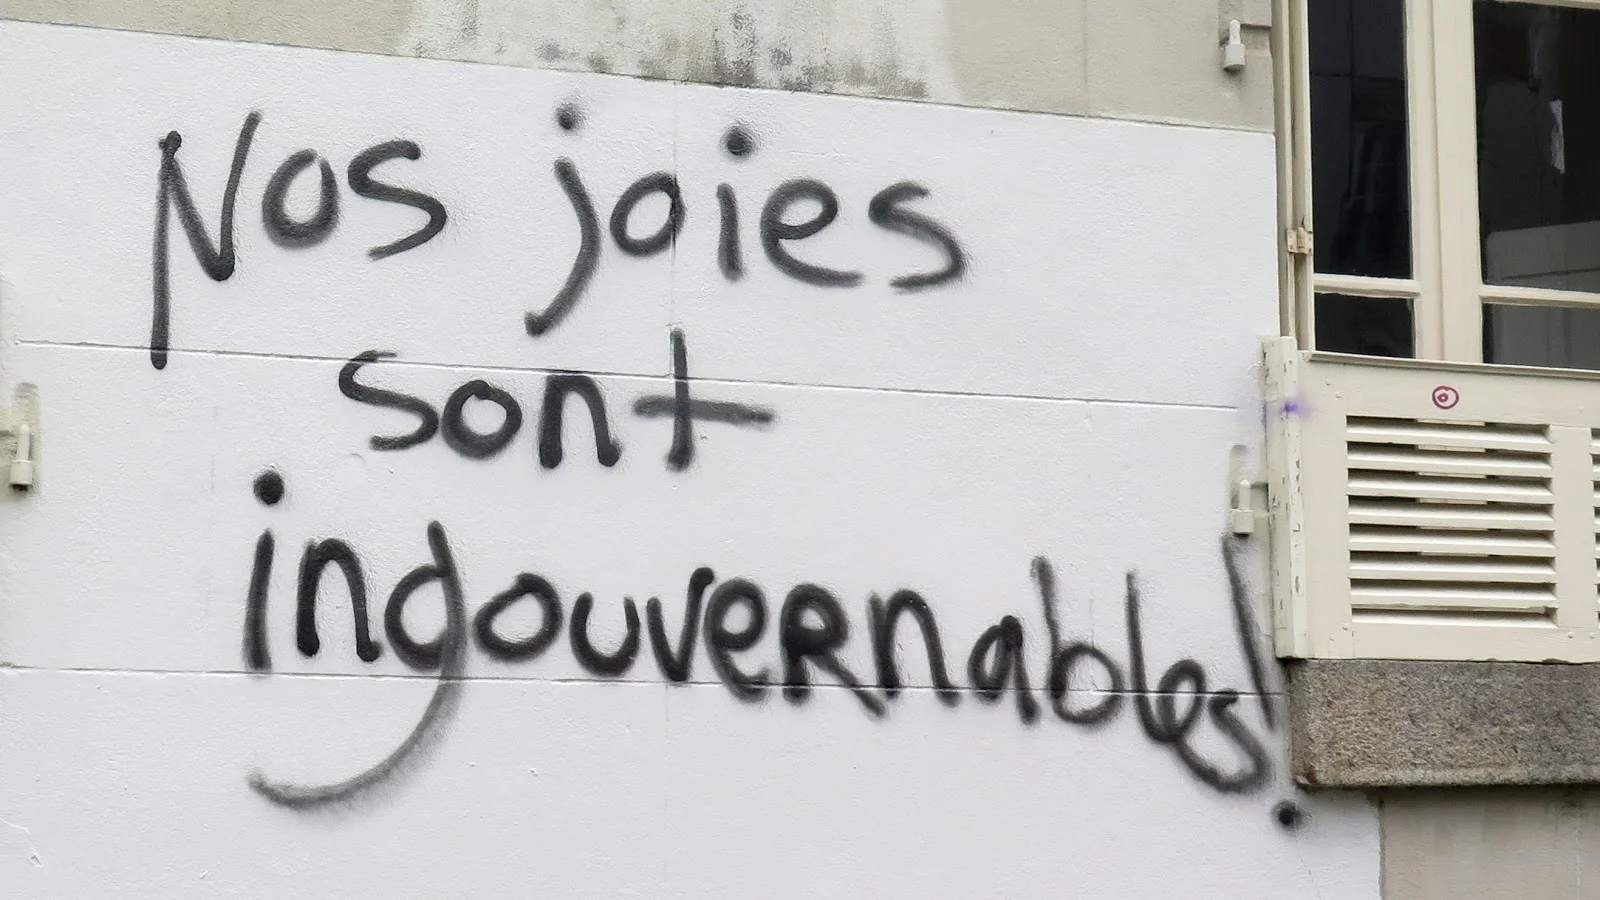 Nos joies
sont
ingouvernables!